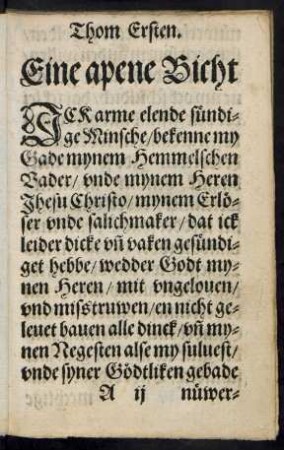 Thom Ersten.
Eine apene Bicht
JCK arme elende sündi⸗
ge Minsche/bekenne my
Gade mynem Hemmelschen
Vader/ vnde mynem Heren
Jhesu Christo/mynem Erlö⸗
ser vnde salichmaker/dat ick
leider dicke vn̄ vaken gesündi⸗
get hebbe/wedder Godt my⸗
nen Heren/ mit vngelouen/
vnd misstruwen/en nicht ge⸗
leuet bauen alle dinck/vn̄ my⸗
nen Negesten alse my suluest/
vnde syner Gödtliken gebade
A ij nüwer⸗